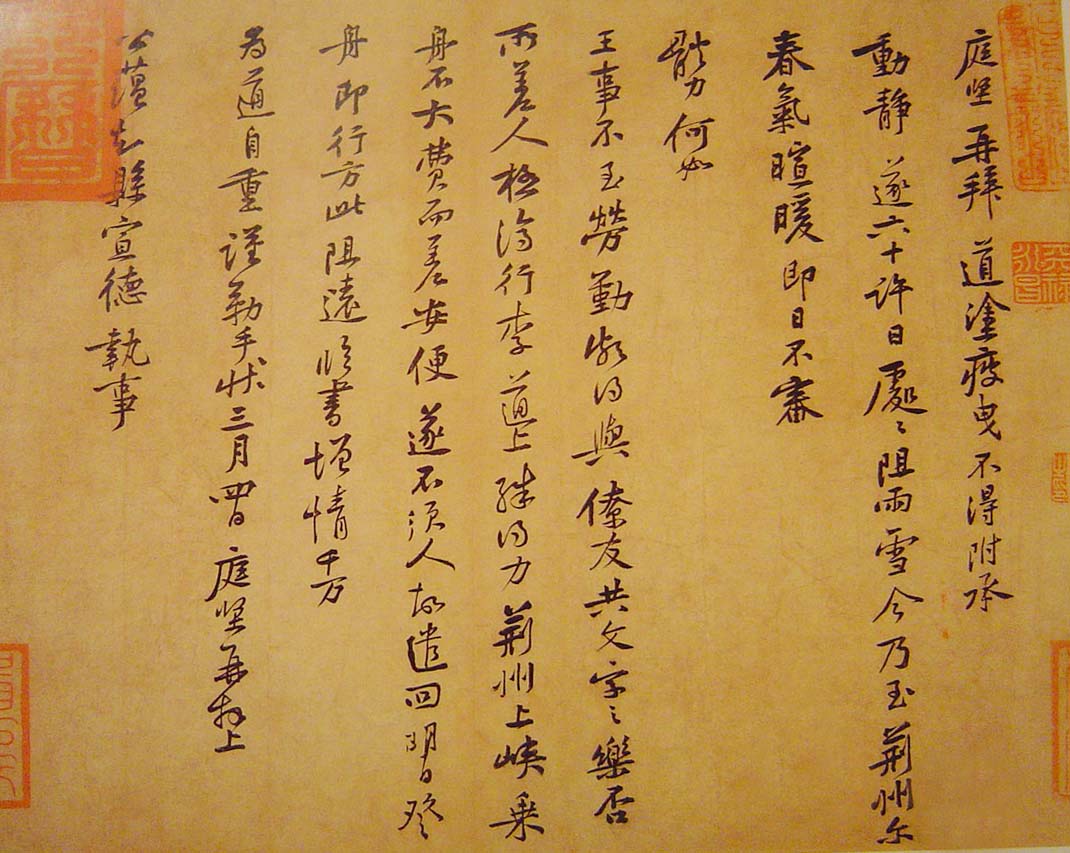 庭堅再拜道塗疲曳不得附承
動靜遂六十許日處〻阻雨雪今乃至荊州尔
春氣暄暖即日不審
體力何如
王事不至勞勤頗得與僚友共文字之樂否
所差人極濟行李道上殊得力荊州上峽乗
舟不大費而差安便遂不須人故遣回明日登
舟即行方此阻遠臨書增情千万
為道自重謹勒手狀三月四日庭堅再拜上
公蘊知縣宣德執事